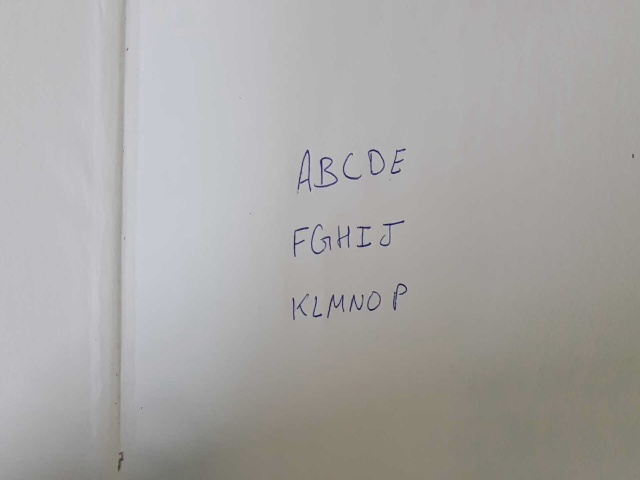 ABCDE
FGHIJ
KLMNOP